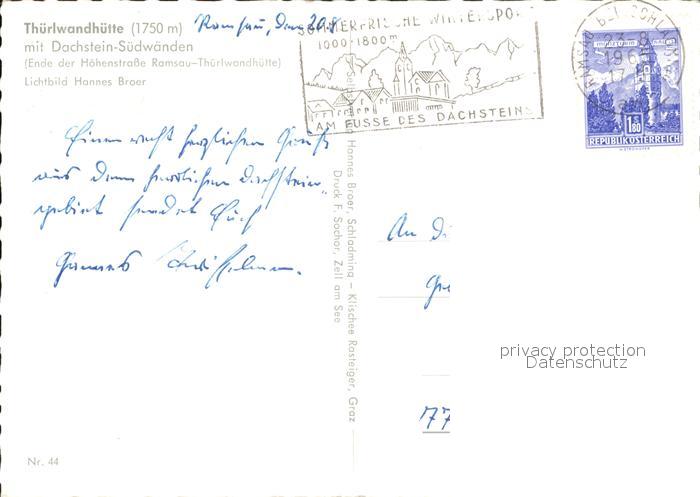 Thürlwandhütte (1750 m)
mit Dachstein-Südwänden
(Ende der Höhenstraße Ramsau–Thürlwandhütte)
Lichtbild Hannes Broer
Ramsau, den 20.8
SOMMERFRISCHE WINTERSPORT
1000-1800m
AM FUSSE DES DACHSTEINS
RAMSAU BEI SCHLADMING
23.8
196
17
MÜNZTURM HALL
1.80
REPUBLIK ÖSTERREICH
Einen recht herzlichen Gruß
aus dem herrlichen Dachstein-
gebiet sendet Euch
Hannes Broer, Schladming – Klischee Rasteiger, Graz
Druck F. Sochor, Zell am See
An Di
77
privacy protection
Datenschutz
Nr. 44